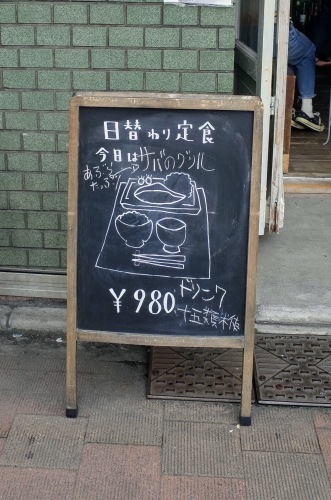 日替わり定食
今日はサバのグリル
あるごま
たっぷり
¥980
ドリンク
十五穀米付